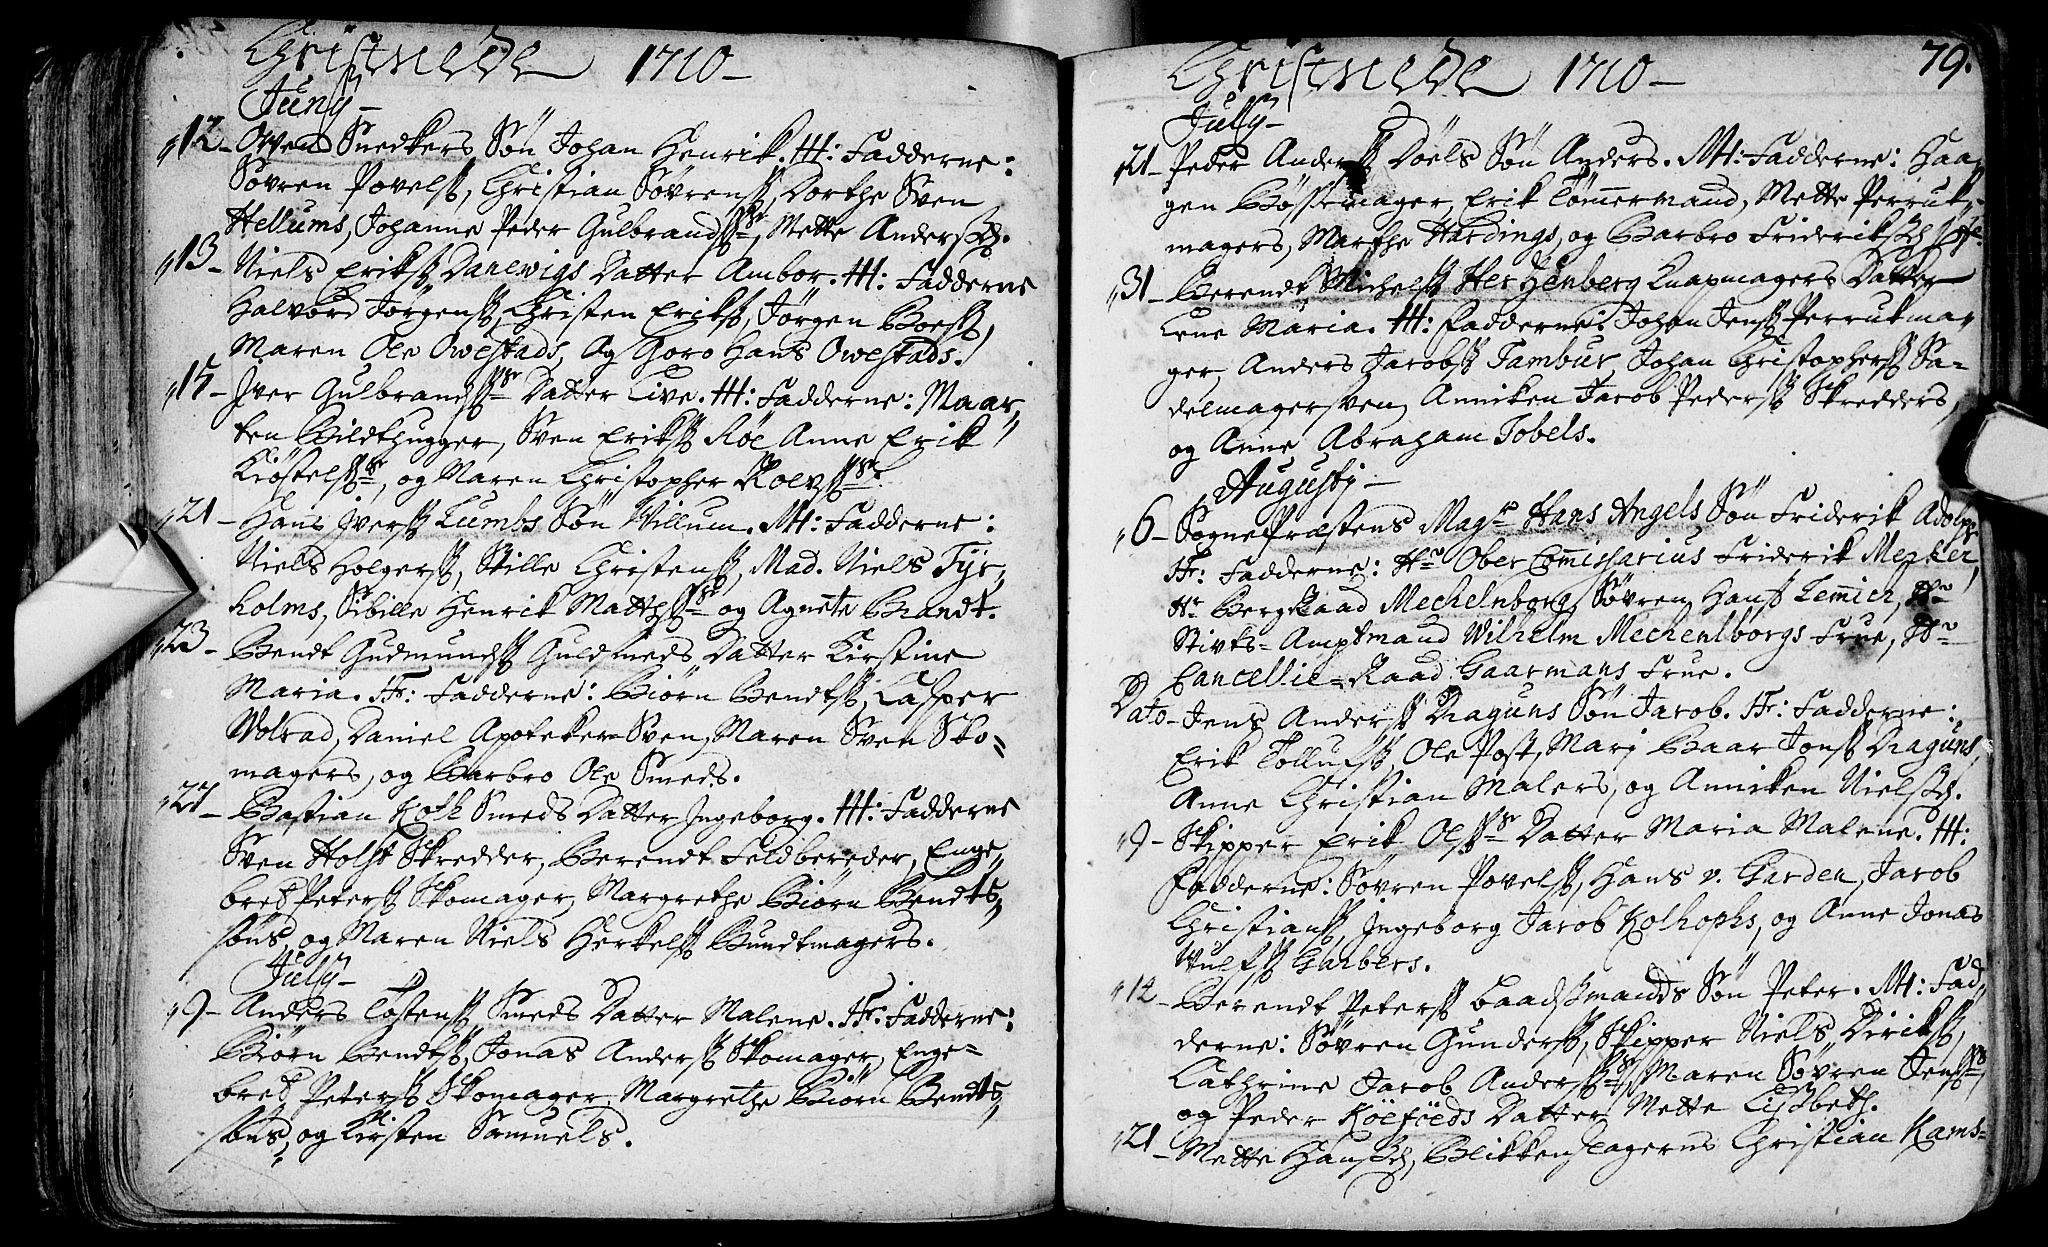 Christnede 1710 –
Junÿ –
12 – Owen Snedkers Søn Johan Henrik. H: Fadderne:
Søvren Povels, Christian Søvrens, Dorthe Sven
Hellums, Johanne Peder Gulbrands, Mette Anders
13 – Niels Eriks Danewigs Datter Ambor. H: Fadderne
Halvord Jørgens, Christen Eriks, Jørgen Boes,
Maren Ole Owestads, Og Goro Hans Owestads.
15 – Iver Gulbrands Datter Live. H: Fadderne: Maar,
ten Bildthugger, Sven Eriks Røe Anne Erik
Kiøstels, og Maren Christopher Roevs.
21 – Hans Ivers Lumbs Søn Willum. M: Fadderne:
Niels Holgers, Stille Christens, Mad. Niels Tÿr,
holms, Sibille Henrik Matths og Agnete Brandt.
23 – Bendt Gudmunds Guldsmeds Datter Kirstine
Maria. Fr: Fadderne: Biørn Bendts, Casper
Wolrad, Daniel Apoteker-Sven, Maren Sven Sko=
magers, og Barbro Ole Smeds.
27 – Bastian Koth Smeds Datter Ingeborg. H: Fadderne
Sven Holst Skredder, Berendt Feldbereder, Enge
bred Peters Skomager, Margrethe Biørn Bendts,
søns, og Maren Niels Herkels Bundtmagers.
Julÿ –
9 – Anders Tostens Smeds Datter Malene. Fr: Fadderne:
Biørn Bendts, Jonas Anders Skomager, Enge=
bred Peters Skomager, Margrethe Biørn Bendts,
søns, og Kirsten Samuels.
Christnede 1710 – 79.
Julÿ –
21 – Peder Anders Døels Søn Anders. M: Fadderne: Haa,
gen Bøssemager, Erik Tømmermand, Mette Perruk,
magers, Marthe Hardings, og Barbro Frideriks
31 – Berendt Michels Hertzenberg Knapmagers Datter
Lene Maria. H: Fadderne: Johan Jens Perrukma,
ger, Anders Jacobs Tambur, Johan Christophers Sa-
delmagersven, Anniken Jacob Peders Skredders,
og Anne Abraham Tobels.
Augustj –
6 – SognePræstens Magr Hans Angels Søn Friderik Adolph
Fr: Fadderne: Hr Ober Commissarius Friderik Merker,
Hr BergRaad Mechelnborg, Søvren Hans Lemmich, Hr
Stivts-Amptmand Wilhelm Mechenlborgs Frue, Hr
Cancellie-Raad Gaarmans Frue.
Dato – Jens Anders Draguns Søn Jacob. Fr: Fadderne:
Erik Tollufs, Ole Post, Mari Baar Jons Draguns,
Anne Christian Malers, og Anniken Niels
9 – Skipper Erik Ols Datter Maria Malene. H:
Fadderne: Søvren Povels, Hans v. Garden, Jacob
Christians, Ingeborg Jacob Kolhophs, og Anne Jonas
Wulfs Garbers.
12 – Berendt Peters Baadsmands Søn Peter. M: Fad,
derne: Søvren Gunders, Skipper Niels Diriks,
Cathrine Jacob Anders, Maren Søvren Jens,
og Peder Køefoeds Datter Mette Lisbeth.
21 – Mette Hans, Blikkenslagerns Christian Kams=